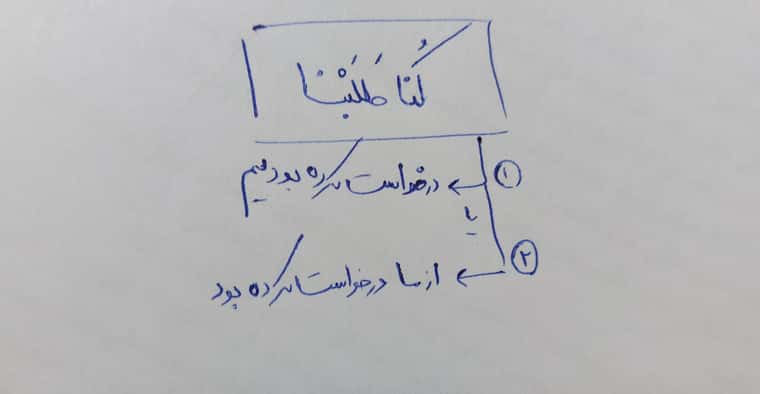 كُنّا طَلَبْنا
① ← درخواست کرده بودیم
یا
② ← از ما درخواست کرده بود